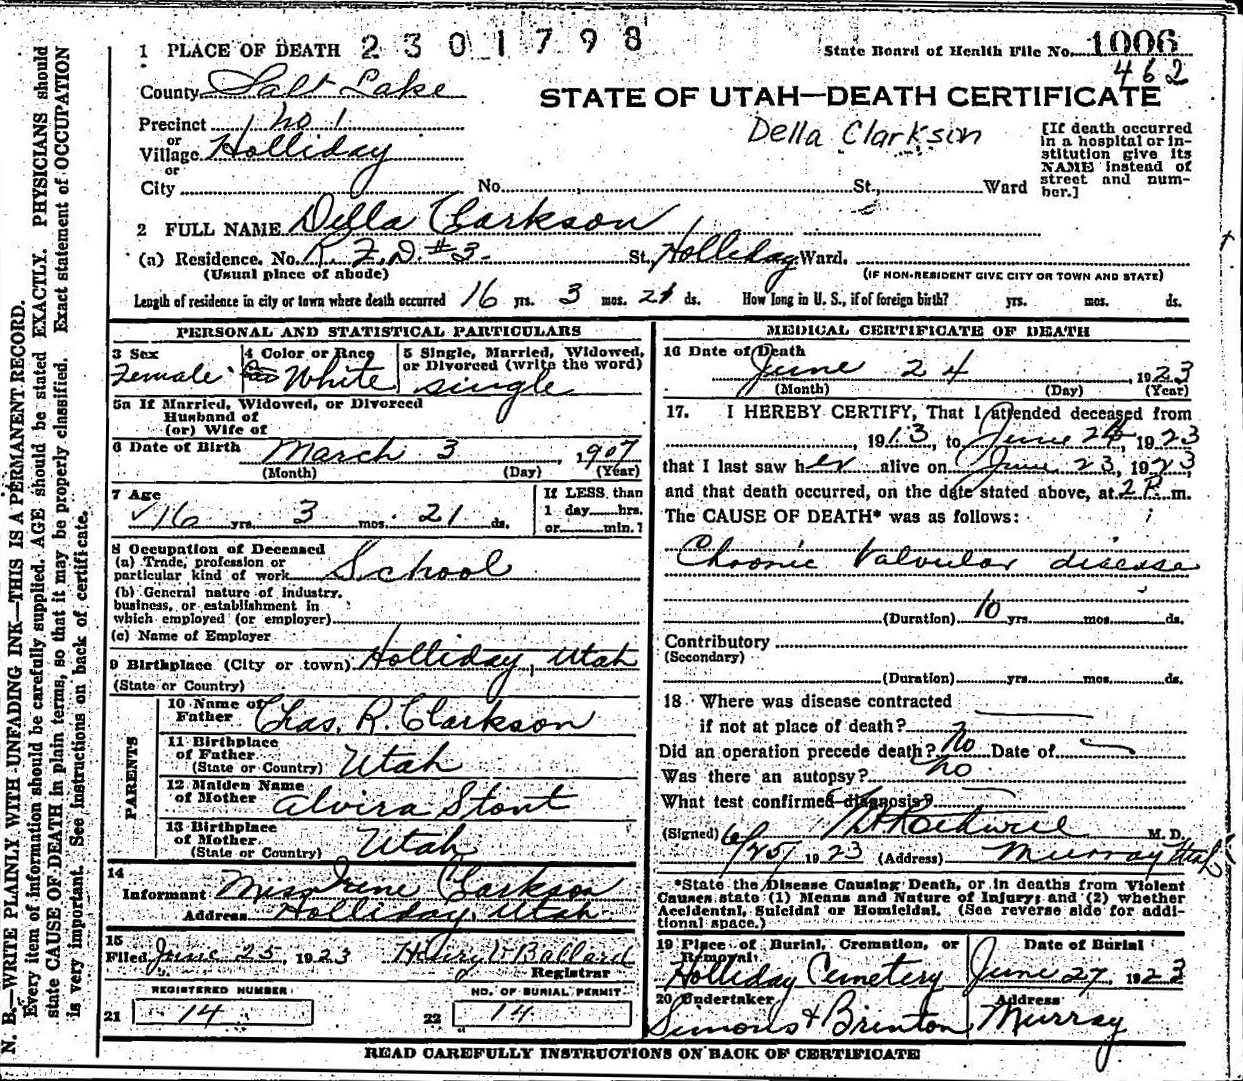 1 PLACE OF DEATH 2301798 State Board of Health File No. 1006
462
County Salt Lake
STATE OF UTAH—DEATH CERTIFICATE
Precinct No 1
or
Village Holliday
or
City No. St., Ward
Della Clarkson
[If death occurred
in a hospital or in-
stitution give its
NAME instead of
street and num-
ber.]
2 FULL NAME Della Clarkson
(a) Residence. No. R.F.D. #3. St. Holliday Ward.
(Usual place of abode) (IF NON-RESIDENT GIVE CITY OR TOWN AND STATE)
Length of residence in city or town where death occurred 16 yrs. 3 mos. 21 ds. How long in U. S., if of foreign birth? yrs. mos. ds.
PERSONAL AND STATISTICAL PARTICULARS
3 Sex Female
4 Color or Race White
5 Single, Married, Widowed, or Divorced (write the word) single
5a If Married, Widowed, or Divorced
Husband of
(or) Wife of
6 Date of Birth March 3, 1907
(Month) (Day) (Year)
7 Age
16 yrs. 3 mos. 21 ds.
If LESS than
1 day hrs.
or min.
8 Occupation of Deceased
(a) Trade, profession or
particular kind of work School
(b) General nature of industry,
business, or establishment in
which employed (or employer)
(c) Name of Employer
9 Birthplace (City or town) Holliday, Utah
(State or Country)
PARENTS
10 Name of
Father Chas. R. Clarkson
11 Birthplace
of Father Utah
(State or Country)
12 Maiden Name
of Mother Alvira Stout
13 Birthplace
of Mother Utah
(State or Country)
14
Informant Miss Irene Clarkson
Address Holliday, Utah.
15
Filed June 25, 1923 Henry W Ballard
Registrar
REGISTERED NUMBER NO. OF BURIAL PERMIT
21 14 22 14
MEDICAL CERTIFICATE OF DEATH
16 Date of Death
June 24, 1923
(Month) (Day) (Year)
17. I HEREBY CERTIFY, That I attended deceased from
, 1913, to June 24, 1923
that I last saw her alive on June 23, 1923,
and that death occurred, on the date stated above, at 2 P. m.
The CAUSE OF DEATH* was as follows:
Chronic Valvular disease
(Duration) 10 yrs. mos. ds.
Contributory
(Secondary)
(Duration) yrs. mos. ds.
18 Where was disease contracted
if not at place of death?
Did an operation precede death? No Date of
Was there an autopsy? No
What test confirmed diagnosis?
(Signed) M. D.
6/25/1923 (Address) Murray Utah
*State the Disease Causing Death, or in deaths from Violent
Causes state (1) Means and Nature of Injury; and (2) whether
Accidental, Suicidal or Homicidal. (See reverse side for addi-
tional space.)
19 Place of Burial, Cremation, or Removal Date of Burial
Holliday Cemetery June 27, 1923
20 Undertaker Address
Simons & Brinton Murray
READ CAREFULLY INSTRUCTIONS ON BACK OF CERTIFICATE
N. B.—WRITE PLAINLY WITH UNFADING INK—THIS IS A PERMANENT RECORD.
Every item of information should be carefully supplied. AGE should be stated EXACTLY. PHYSICIANS should
state CAUSE OF DEATH in plain terms, so that it may be properly classified. Exact statement of OCCUPATION
is very important. See instructions on back of certificate.